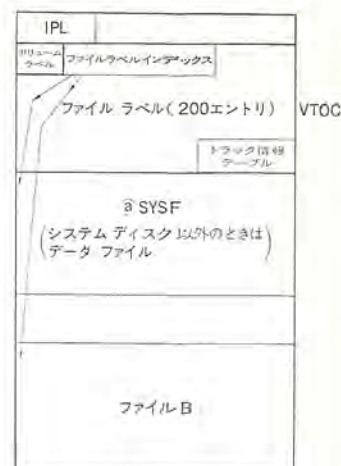 IPL
ボリューム
ラベル
ファイルラベルインデックス
ファイル ラベル(200エントリ)
VTOC
トラック情報
テーブル
@ SYSF
(システム ディスク以外のときは
データ ファイル)
ファイル B